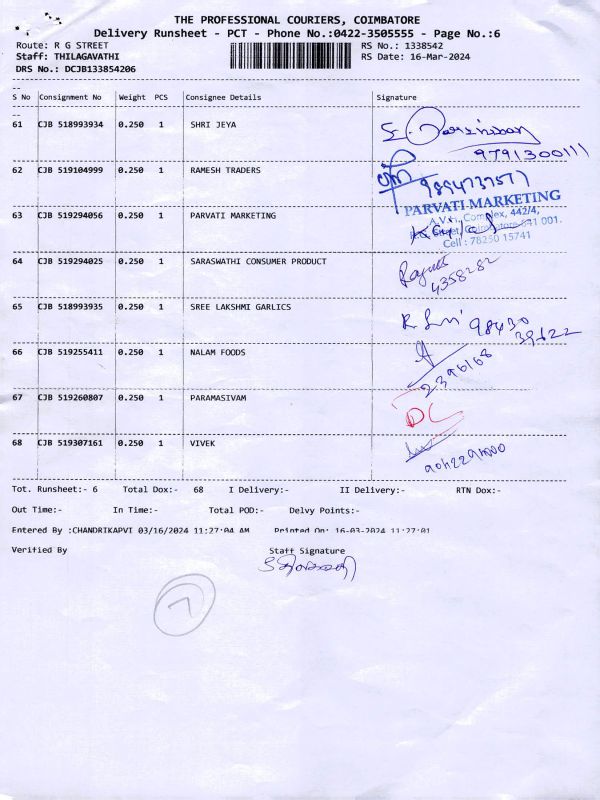 THE PROFESSIONAL COURIERS, COIMBATORE
Delivery Runsheet - PCT - Phone No.:0422-3505555 - Page No.:6
Route: R G STREET
RS No.: 1338542
Staff: THILAGAVATHI
RS Date: 16-Mar-2024
DRS No.: DCJB133854206
S No Consignment No Weight PCS Consignee Details Signature
61 CJB 518993934 0.250 1 SHRI JEYA
9791300111
62 CJB 519104999 0.250 1 RAMESH TRADERS
63 CJB 519294056 0.250 1 PARVATI MARKETING
PARVATI MARKETING
Complex, 442/4,
641 001.
Cell : 78250 15741
64 CJB 519294025 0.250 1 SARASWATHI CONSUMER PRODUCT
4358282
65 CJB 518993935 0.250 1 SREE LAKSHMI GARLICS
98430
39622
66 CJB 519255411 0.250 1 NALAM FOODS
2396168
67 CJB 519260807 0.250 1 PARAMASIVAM
DC
68 CJB 519307161 0.250 1 VIVEK
Tot. Runsheet:- 6 Total Dox:- 68 I Delivery:- II Delivery:- RTN Dox:-
Out Time:- In Time:- Total POD:- Delvy Points:-
Entered By :CHANDRIKAPVI 03/16/2024 11:27:04 AM Printed On: 16-03-2024 11:27:01
Verified By Staff Signature